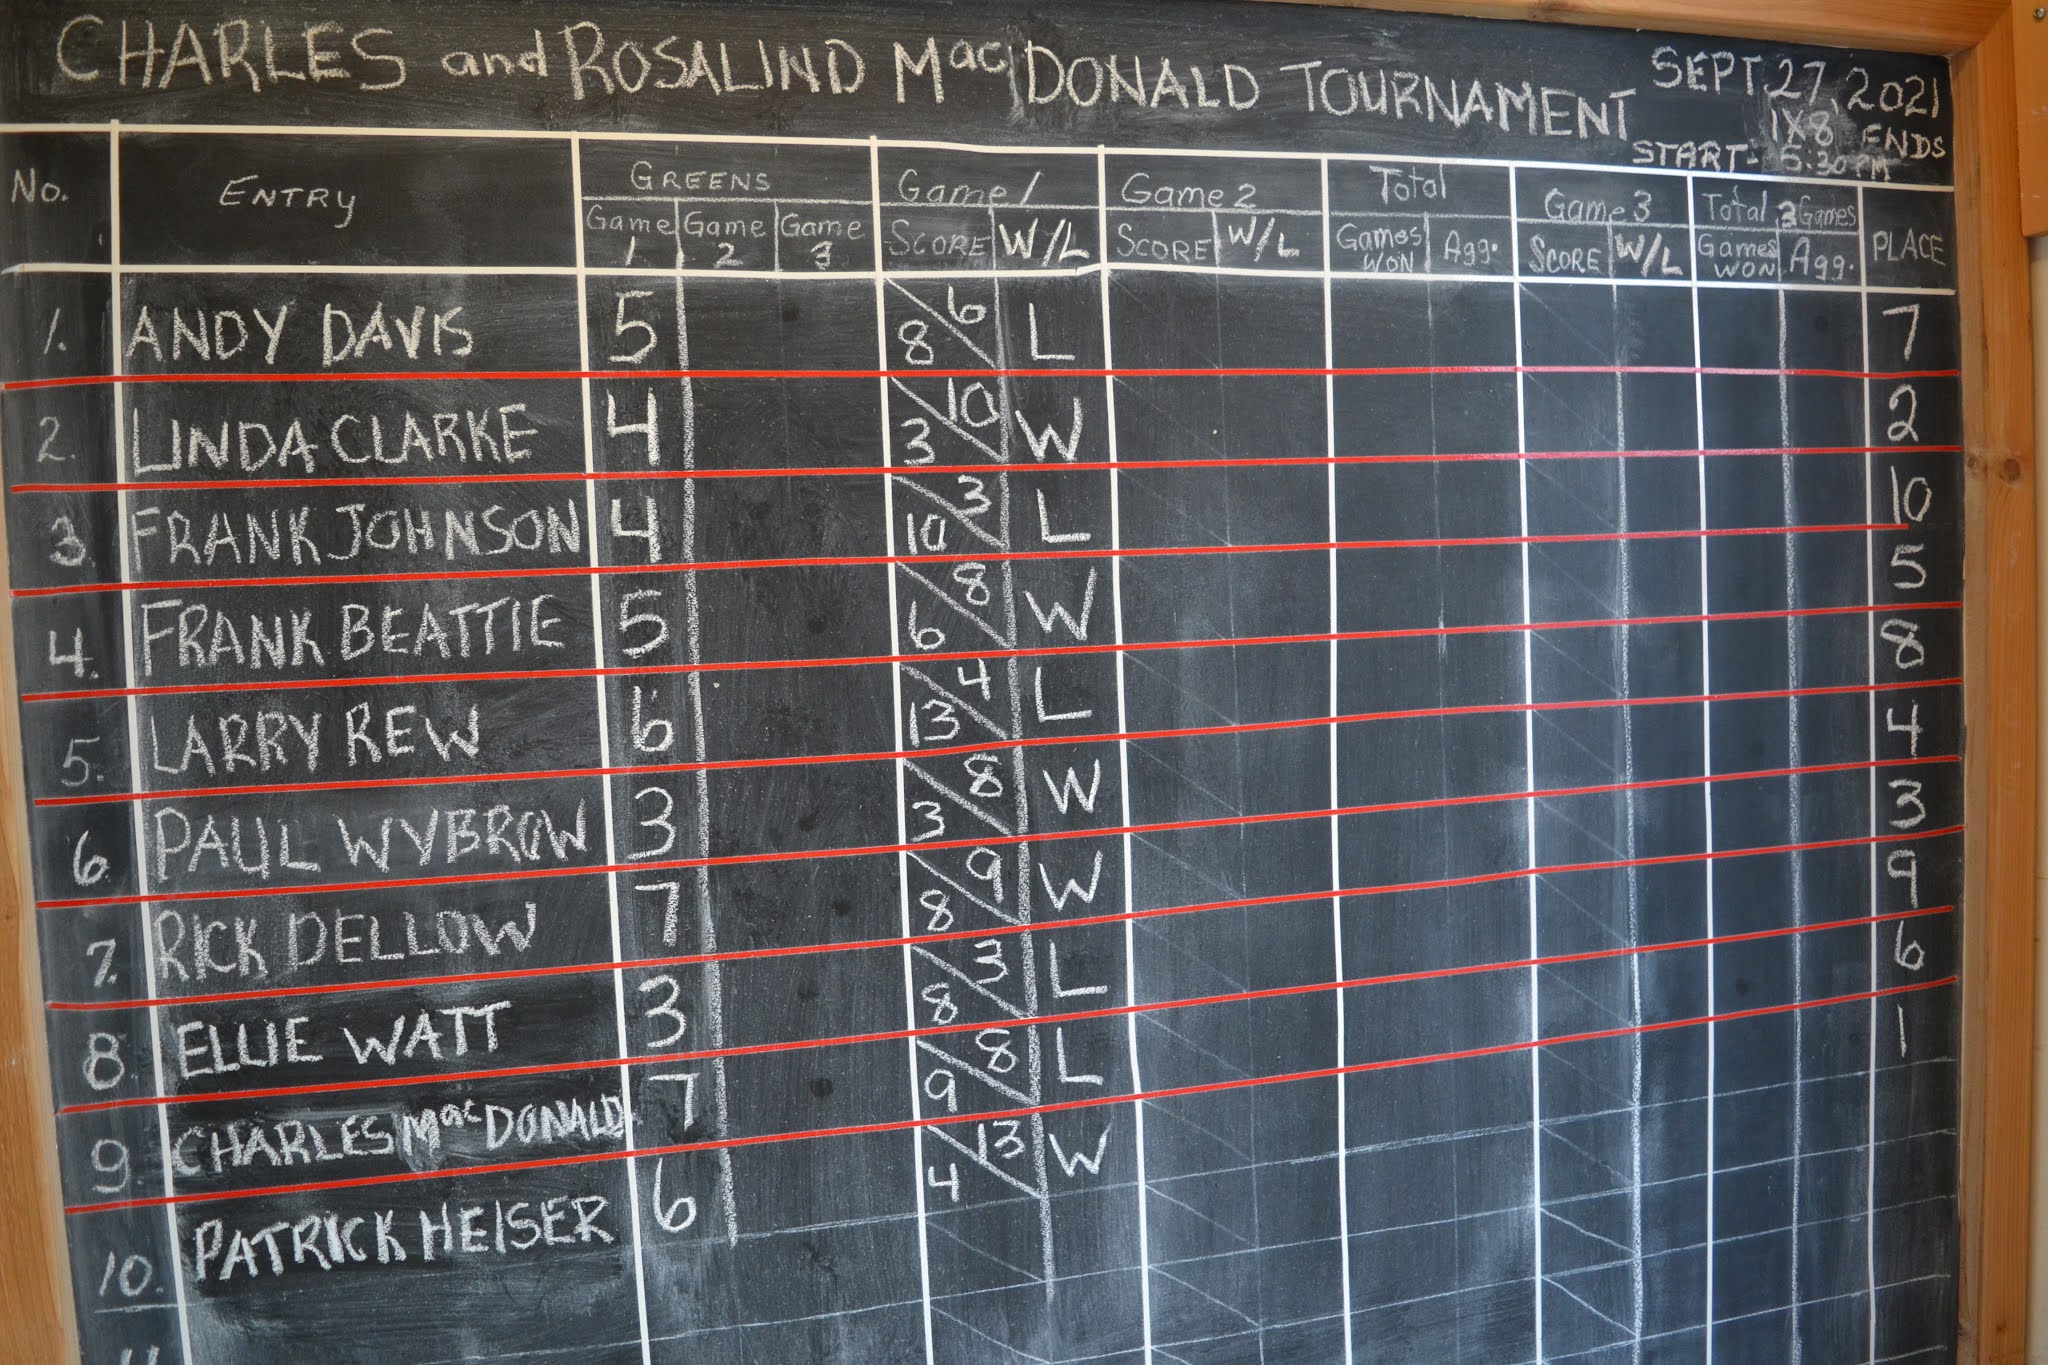 CHARLES and ROSALIND MacDONALD TOURNAMENT SEPT. 27, 2021
1X8 ENDS
START- 5:30 PM
No. ENTRY GREENS Game 1 Game 2 Total Game 3 Total 3 Games PLACE
Game 1 Game 2 Game 3 SCORE W/L SCORE W/L Games WON Agg. SCORE W/L Games WON Agg.
1. ANDY DAVIS 5 8/6 L 7
2. LINDA CLARKE 4 3/10 W 2
3. FRANK JOHNSON 4 10/3 L 10
4. FRANK BEATTIE 5 6/8 W 5
5. LARRY REW 6 13/4 L 8
6. PAUL WYBROW 3 3/8 W 4
7. RICK DELLOW 7 8/9 W 3
8. ELLIE WATT 3 8/3 L 9
9. CHARLES MacDONALD 7 9/8 L 6
10. PATRICK HEISER 6 4/13 W 1
11